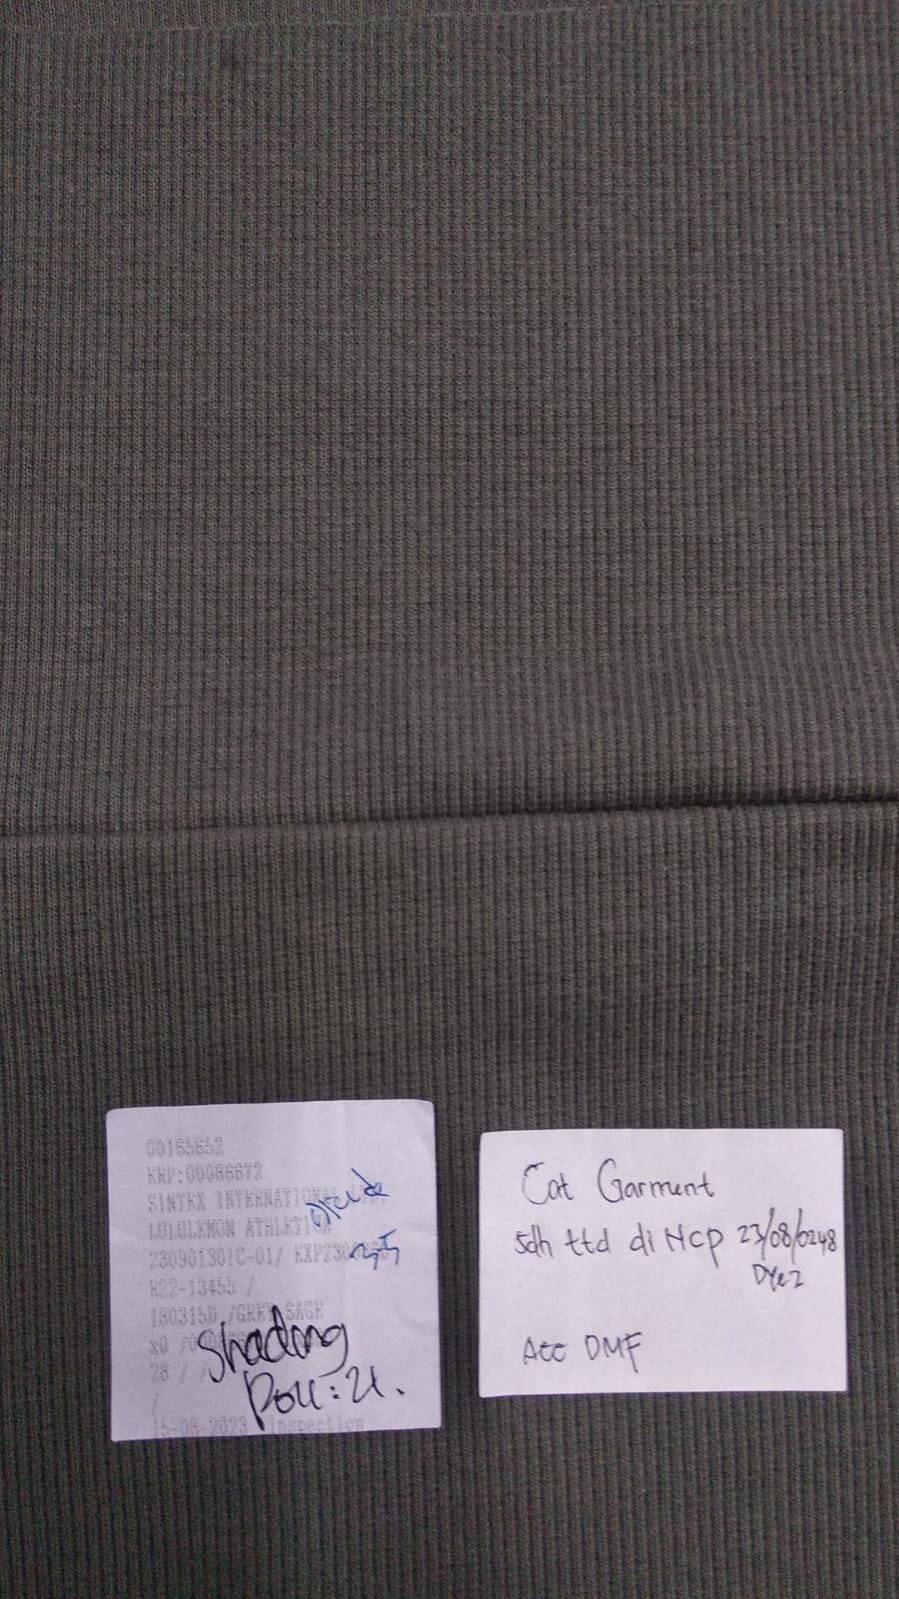 00165652
KKP:00086672
SINTEX INTERNATIONAL LTD.
LULULEMON ATHLETICA
230901301C-01/
R22-13455 /
180315D /GREY SAGE
x0
28 / /
/
15-08-2023 inspection
Shading
Roll: 21.
Cat Garment
sdh ttd di NCP 23/08/0248
Dye 2
Acc DMF